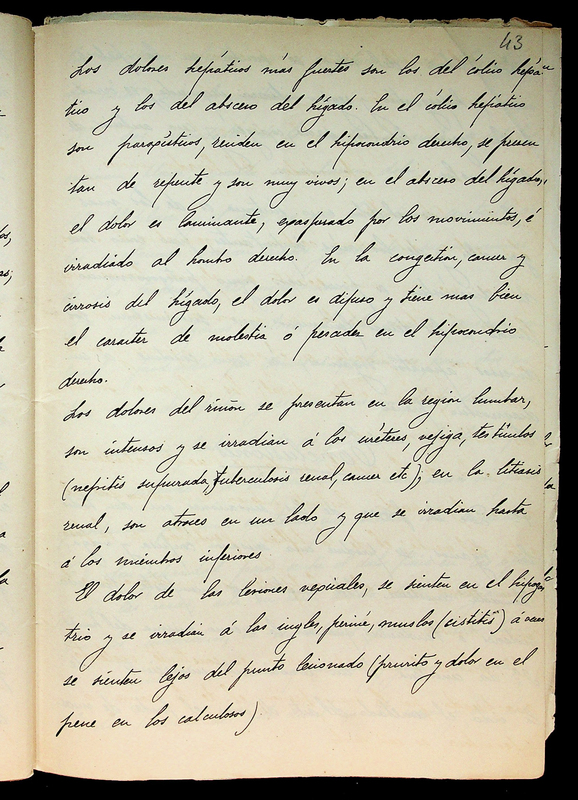 43
Los dolores hepáticos más fuertes son los del cólico hepá-
tico y los del absceso del hígado. En el cólico hepático
son paroxísticos, residen en el hipocondrio derecho, se presen
tan de repente y son muy vivos; en el absceso del hígado,
el dolor es laminante, exasperado por los movimientos, é
irradiado al hombro derecho. En la congestión, cancer y
cirrosis del hígado, el dolor es difuso y tiene mas bien
el caracter de molestia ó pesadez en el hipocondrio
derecho.
Los dolores del riñon se presentan en la region lumbar,
son intensos y se irradian á los uréteres, vejiga, testiculos
(nefritis supurada, tuberculosis renal, cancer etc); en la litiasis
renal, son atroces en un lado y que se irradian hasta
á los miembros inferiores
El dolor de las lesiones vesicales, se sienten en el hipogas
trio y se irradian á las ingles, periné, muslos (cistitis) á veces
se sienten lejos del punto lesionado (prurito y dolor en el
pene en los calculosos).